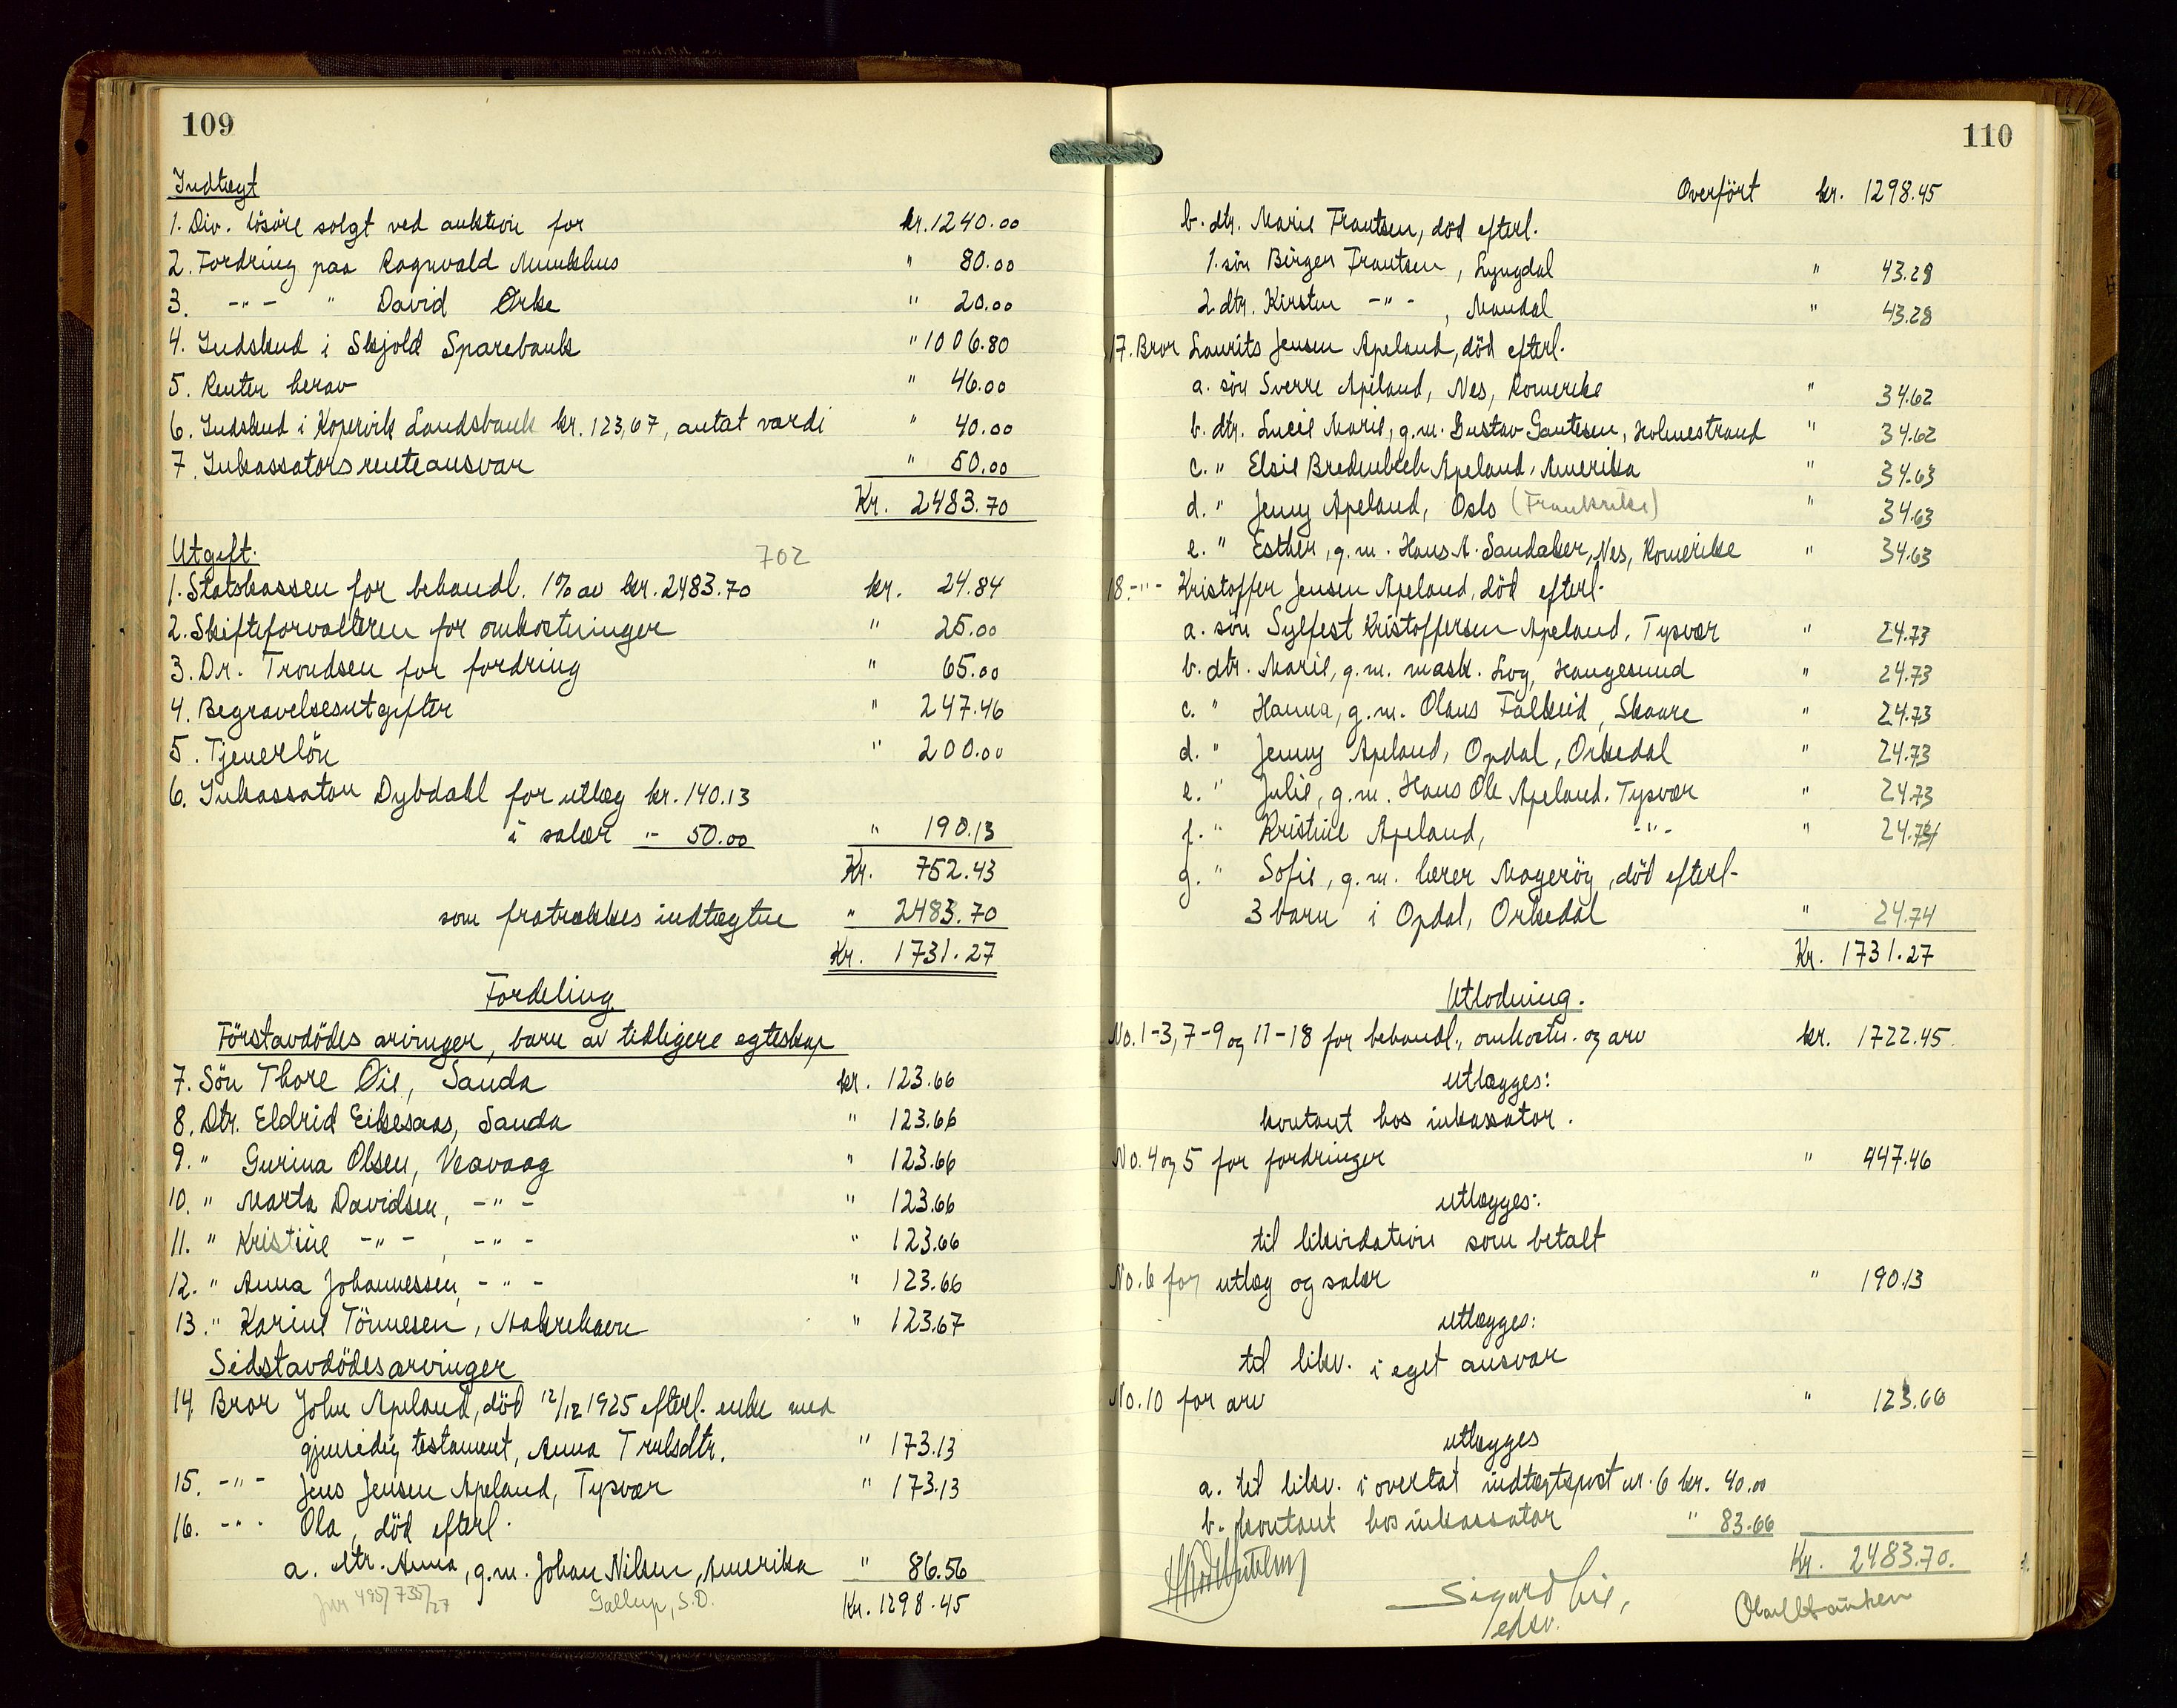 109
Indtægt
1. Div. lösöre solgt ved auktion for kr. 1240.00
2. Fordring paa Ragnvald Munkhus " 80.00
3. -"- " David Ørke " 20.00
4. Indskud i Skjold Sparebank " 1006.80
5. Renter herav " 46.00
6. Indskud i Kopervik Landsbank kr. 123,67, antat værdi " 40.00
7. Inkassators renteansvar " 50.00
Kr. 2483.70
Utgift: 702
1. Statskassen for behandl. 1% av kr. 2483.70 kr. 24.84
2. Skifteforvalteren for omkostninger " 25.00
3. Dr. Trondsen for fordring " 65.00
4. Begravelsesutgifter " 247.46
5. Tjenerlön " 200.00
6. Inkassator Dybdahl for utlæg kr. 140.13
i salær "- 50.00 " 190.13
Kr. 752.43
som fratrækkes indtægten " 2483.70
Kr. 1731.27
Fordeling
Förstavdödes arvinger, barn av tidligere egteskap
7. Sön Thore Øie, Sauda kr. 123.66
8. Dtr. Eldrid Eikesaas, Sauda " 123.66
9. " Gurina Olsen, Veavaag " 123.66
10. " Marta Davidsen, -"- " 123.66
11. " Kristine -"-, -"- " 123.66
12. " Anna Johannessen, -"- " 123.66
13. " Karine Tönnesen, Aakrehavn " 123.67
Sidstavdödes arvinger
14. Bror John Apeland, död 12/12 1925 efterl. enke med
gjensidig testament, Anna Trulsdtr. " 173.13
15. -"- Jens Jensen Apeland, Tysvær " 173.13
16. -"- Ola, död efterl.
a. dtr. Anna, g.m. Johan Nilsen, Amerika " 86.56
Jnr 495/735/27 Gallup, S.D. Kr. 1298.45
110
Overfört kr. 1298.45
b. dtr. Marie Frantsen, död efterl.
1. sön Birger Frantsen, Lyngdal " 43.28
2. dtr. Kirsten -"-, Mandal " 43.28
17. Bror Laurits Jensen Apeland, död efterl.
a. sön Sverre Apeland, Nes, Romerike " 34.62
b. dtr. Lucie Marie, g.m. Gustav Gautesen, Holmestrand " 34.62
c. " Elsie Apeland, Amerika " 34.63
d. " Jenny Apeland, Oslo (Frankrike) " 34.63
e. " Esther, g.m. Hans A. Sandaker, Nes, Romerike " 34.63
18. -"- Kristoffer Jensen Apeland, död efterl.
a. sön Sylfest Kristoffersen Apeland, Tysvær " 24.73
b. dtr. Marie, g.m. mask. Log, Haugesund " 24.73
c. " Hanna, g.m. Olaus Fälkeid, Skaare " 24.73
d. " Jenny Apeland, Opdal, Orkedal " 24.73
e. " Julie, g.m. Hans Ole Apeland, Tysvær " 24.73
f. " Kristine Apeland, -"- " 24.74
g. " Sofie, g.m. lærer Mageröy, död efterl.
3 barn i Opdal, Orkedal " 24.74
Kr. 1731.27
Utlodning.
No. 1-3, 7-9 og 11-18 for behandl., omkostn. og arv kr. 1722.45
utlægges:
kontant hos inkassator.
No. 4 og 5 for fordringer " 447.46
utlægges:
til likvidation som betalt
No. 6 for utlæg og salær " 190.13
utlægges:
til likv. i eget ansvar
No. 10 for arv " 123.66
utlægges
a. til likv. i overtat indtægtspost nr. 6 kr. 40.00
b. kontant hos inkassator " 83.66
Kr. 2483.70.
Sigurd Lie,
edsv.